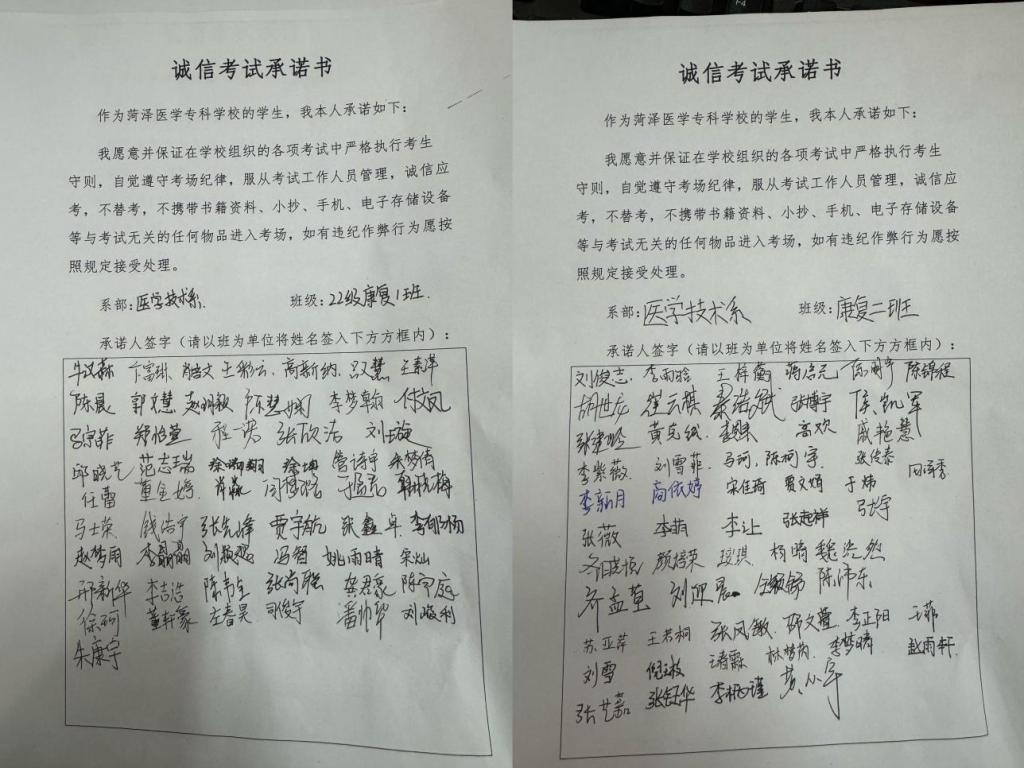 诚信考试承诺书
作为菏泽医学专科学校的学生，我本人承诺如下：
我愿意并保证在学校组织的各项考试中严格执行考生
守则，自觉遵守考场纪律，服从考试工作人员管理，诚信应
考，不替考，不携带书籍资料、小抄、手机、电子存储设备
等与考试无关的任何物品进入考场，如有违纪作弊行为愿按
照规定接受处理。
系部：医学技术系 班级：22级康复1班
承诺人签字（请以班为单位将姓名签入下方方框内）：
高新纳 吕慧
陈晨 郭文慧 李梦翰 付凤
吕宗菲 郑怡萱 程一诺 张欣洁 刘璇
邱晓艺 范志瑞 徐坤 管诗宇 朱梦倩
任蕾 董金婷
马士荣 钱浩宇 张先锋 贾宇航 张鑫卓
赵梦雨 李晶晶 冯智 姚雨晴 宋灿
邢新华 李吉浩 张尚聪 陈守庭
徐珂 董轩豪 左春昊 司俊宇 潘帅华 刘峻利
朱康宇
诚信考试承诺书
作为菏泽医学专科学校的学生，我本人承诺如下：
我愿意并保证在学校组织的各项考试中严格执行考生
守则，自觉遵守考场纪律，服从考试工作人员管理，诚信应
考，不替考，不携带书籍资料、小抄、手机、电子存储设备
等与考试无关的任何物品进入考场，如有违纪作弊行为愿按
照规定接受处理。
系部：医学技术系 班级：康复二班
承诺人签字（请以班为单位将姓名签入下方方框内）：
刘俊志 李雨晗 王梓衡 蒋启元 陈锦程
胡世龙 崔云祺 秦浩斌 张博宇 侯凯军
张建 黄克斌 高欢 戚艳慧
李紫薇 刘雪菲 马珂 陈珂宇 张传泰
李新月 尚依婷 宋佳琦 贾文娟 于炜
张薇 李萌 李让 张起祥 马宇
颜培荣 杨晴 魏浩然
齐孟茴 刘迎晨 陈沛东
苏亚萍 王若桐 张风敏 邵文萱 李正阳 王菲
刘雪 倪敏 李梦晴 赵雨轩
张艺嘉 张钰华 黄从宇